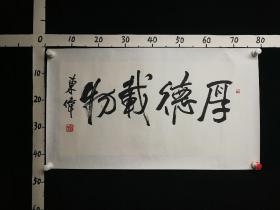 厚德載物
東偉
0 10 20 30 40 50 60 70 80
10
20
30
40
50